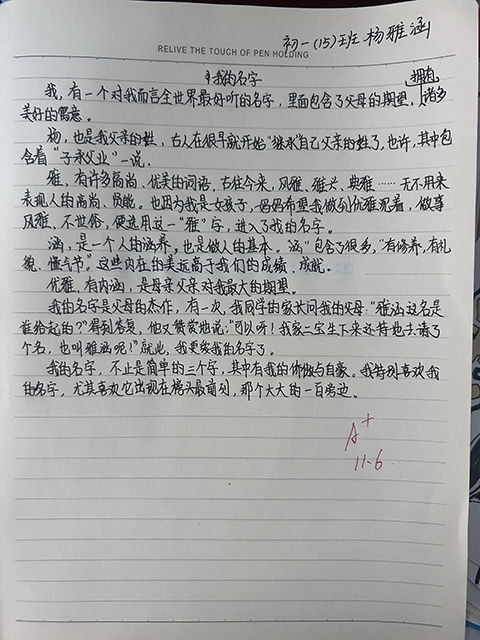 初一(15)班 杨雅涵
RELIVE THE TOUCH OF PEN HOLDING
我的名字
拥抱
我,有一个对我而言全世界最好听的名字,里面包含了父母的期望,诸多
美好的寓意。
杨,也是我父亲的姓,古人在很早就开始"继承"自己父亲的姓了,也许,其中包
含着"子承父业"一说。
雅,有许多高尚、优美的词语,古往今来,风雅、雅兴、典雅……无不用来
表现人的高尚、贤能。也因为我是女孩子,妈妈希望我做到优雅沉着,做事
风雅、不世俗,便选用这一"雅"字,进入了我的名字。
涵,是一个人的涵养,也是做人的基本。"涵"包含了很多,"有修养,有礼
貌、懂气节"。这些内在的美远高于我们的成绩、成就。
优雅、有内涵,是母亲父亲对我最大的期望。
我的名字是父母的杰作,有一次,我同学的家长问我的父母:"雅涵这名是
谁给起的?"得到答复,他又赞赏地说:"可以呀!我家二宝生下来还特地去请了
个名,也叫雅涵呢!"就此,我更爱我的名字了。
我的名字,不止是简单的三个字,其中有我的骄傲与自豪。我特别喜欢我
的名字,尤其喜欢它出现在榜头最前列,那个大大的一百旁边。
A+
11-6.